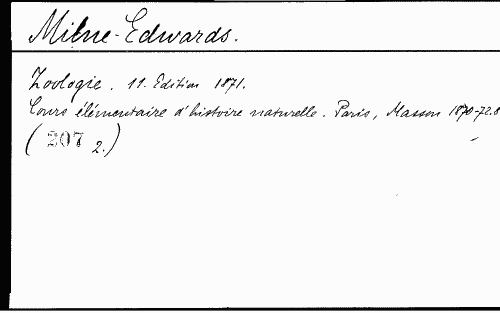 Milne-Edwards.
Zoologie. 11. Edition 1871.
Cours élémentaire d'histoire naturelle. Paris, Masson 1870-72. 8
(207 2.)